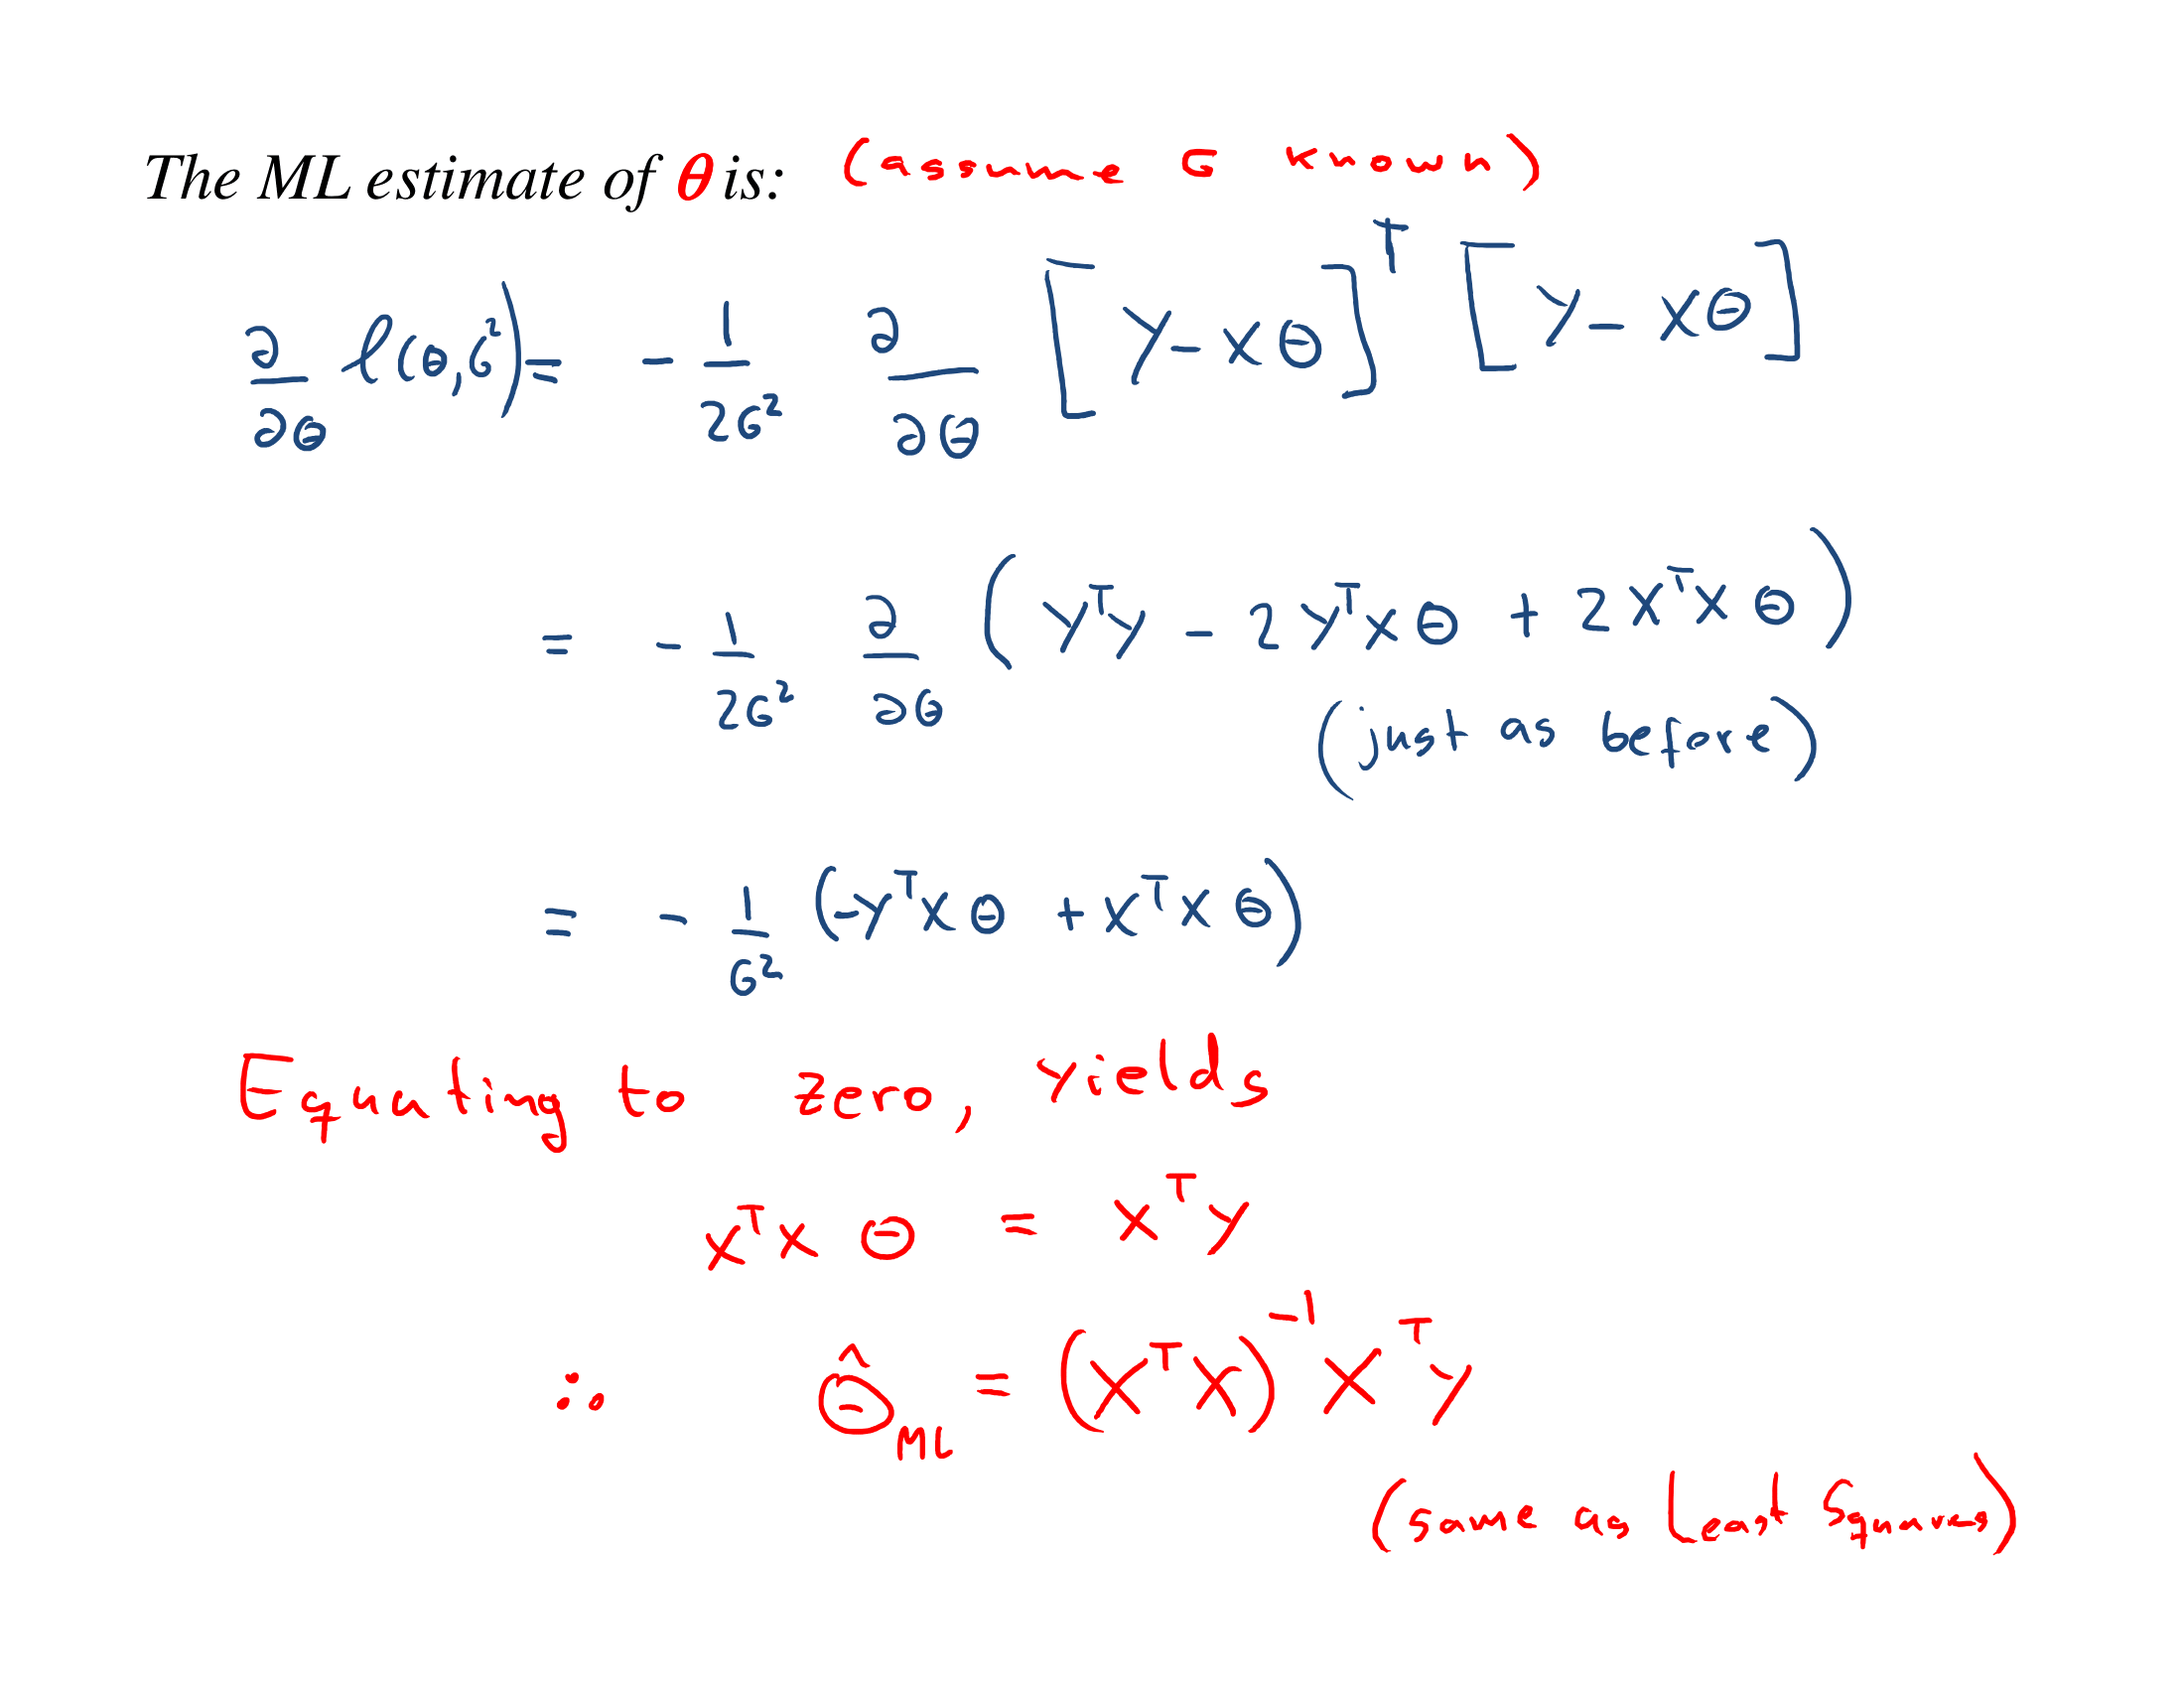 The ML estimate of θ is: (assume σ known)
∂/∂θ ℓ(θ,σ²) = - 1/2σ² ∂/∂θ [Y - Xθ]ᵀ [Y - Xθ]
= - 1/2σ² ∂/∂θ (YᵀY - 2YᵀXθ + 2XᵀXθ)
(just as before)
= - 1/σ² (-YᵀXθ + XᵀXθ)
Equating to zero, yields
XᵀX θ = XᵀY
∴ θ̂_ML = (XᵀX)⁻¹ XᵀY
(same as least squares)